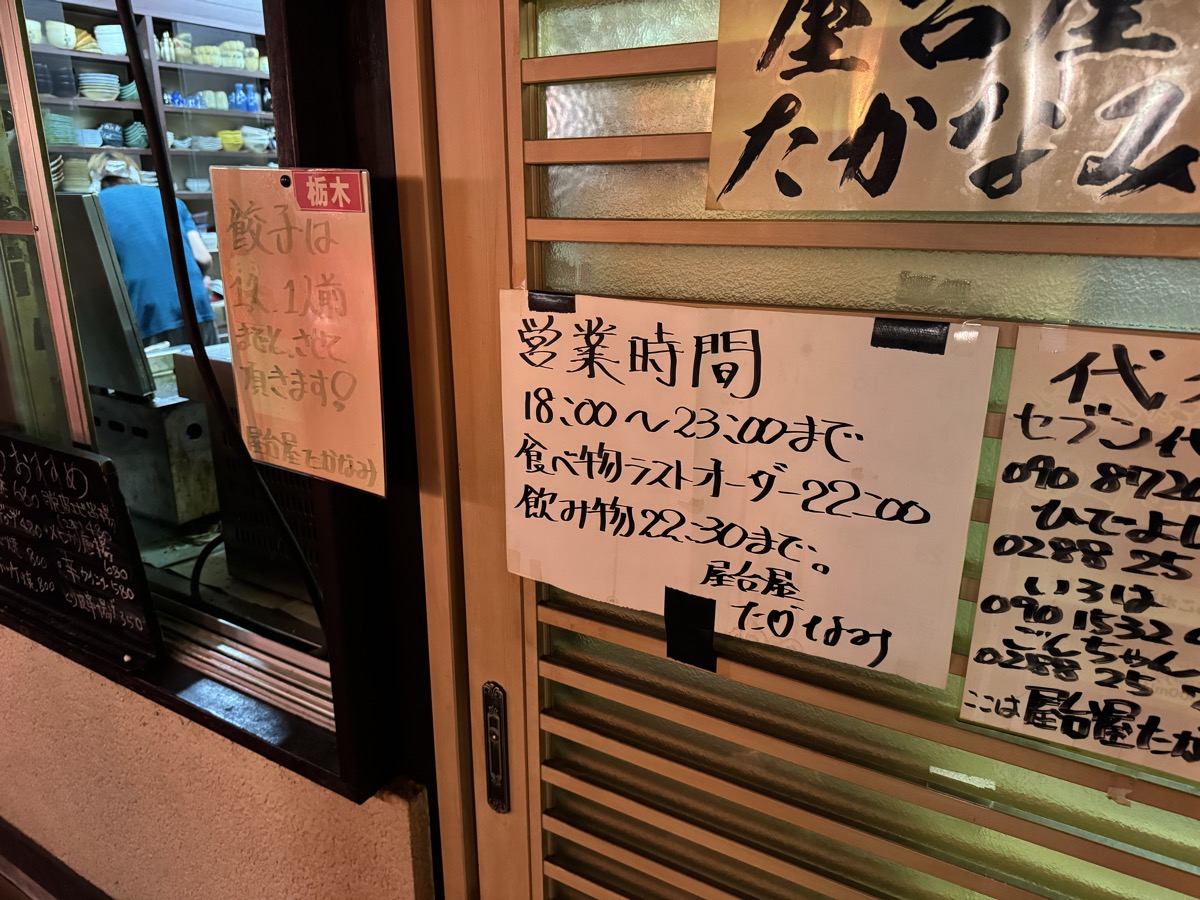 屋台屋
たかなみ
栃木
餃子は
1人、1人前
までと、させて
頂きます!
屋台屋たかなみ
営業時間
18:00〜23:00まで
食べ物ラストオーダー22:00
飲み物22:30まで。
屋台屋
たかなみ
代
セブン代
090 8720
ひでよし
0288 25
いろは
090 1532
ごんちゃん
0288 25
ここは屋台屋たかな
おすすめ
630
580
350